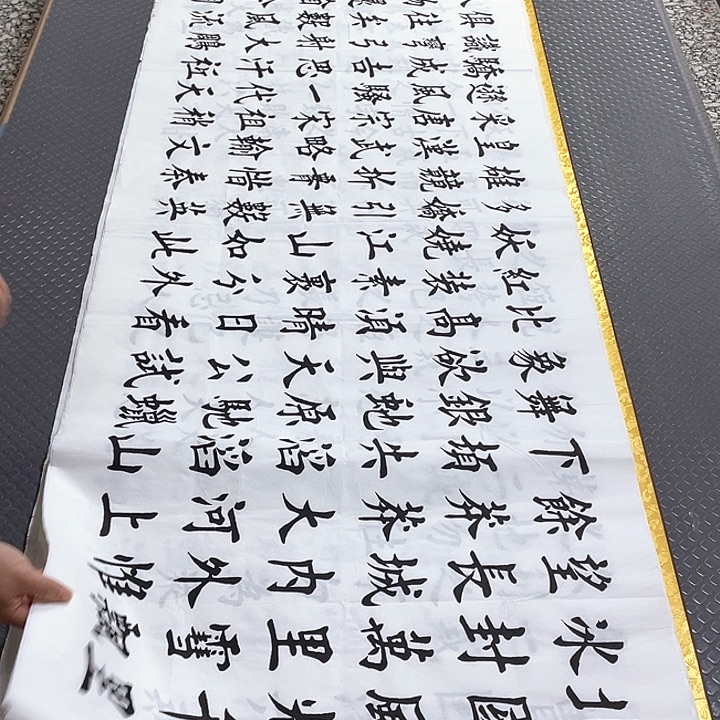 國風光千
冰封萬里雪飄
望長城內外惟
餘莽莽大河上
下頓失滔滔山
舞銀蛇原馳蠟
象欲與天公試
比高須晴日看
紅裝素裹分外
妖嬈江山如此
多嬌引無數英
雄競折腰惜秦
皇漢武略輸文
采唐宗宋祖稍
遜風騷一代天
驕成吉思汗祇
識彎弓射大鵰
俱往矣數風流
人物